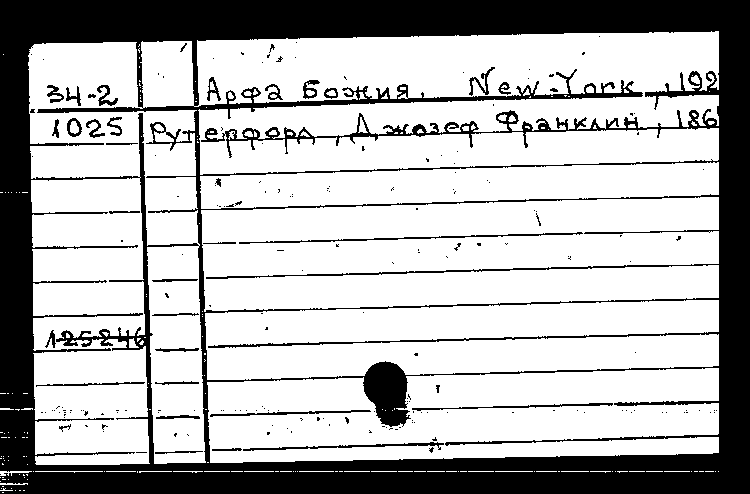 34-2 Арфа Божия. New-York, 192
1025 Рутерфорд, Джозеф Франклин, 186
125246